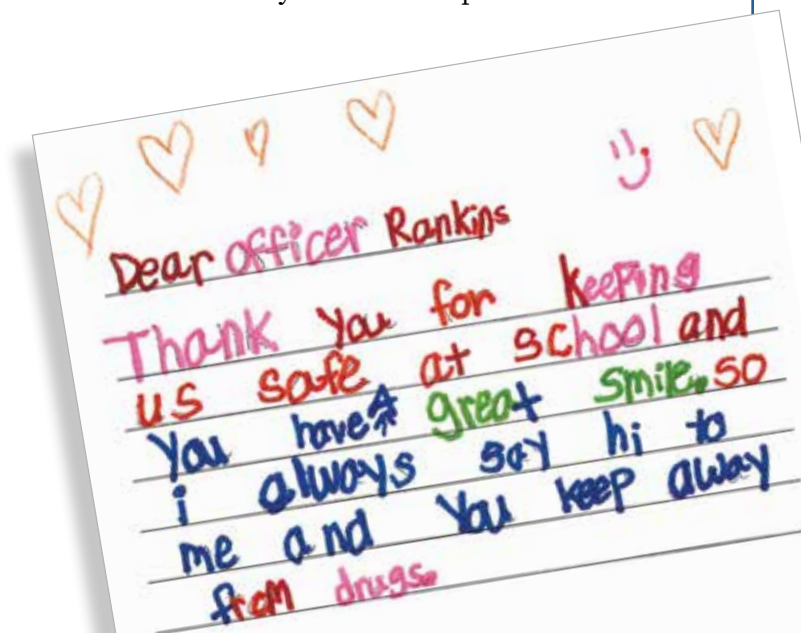 Dear officer Rankins
Thank you for keeping
us safe at school and
you have a great smile. so
i always say hi to
me and you keep away
from drugs.